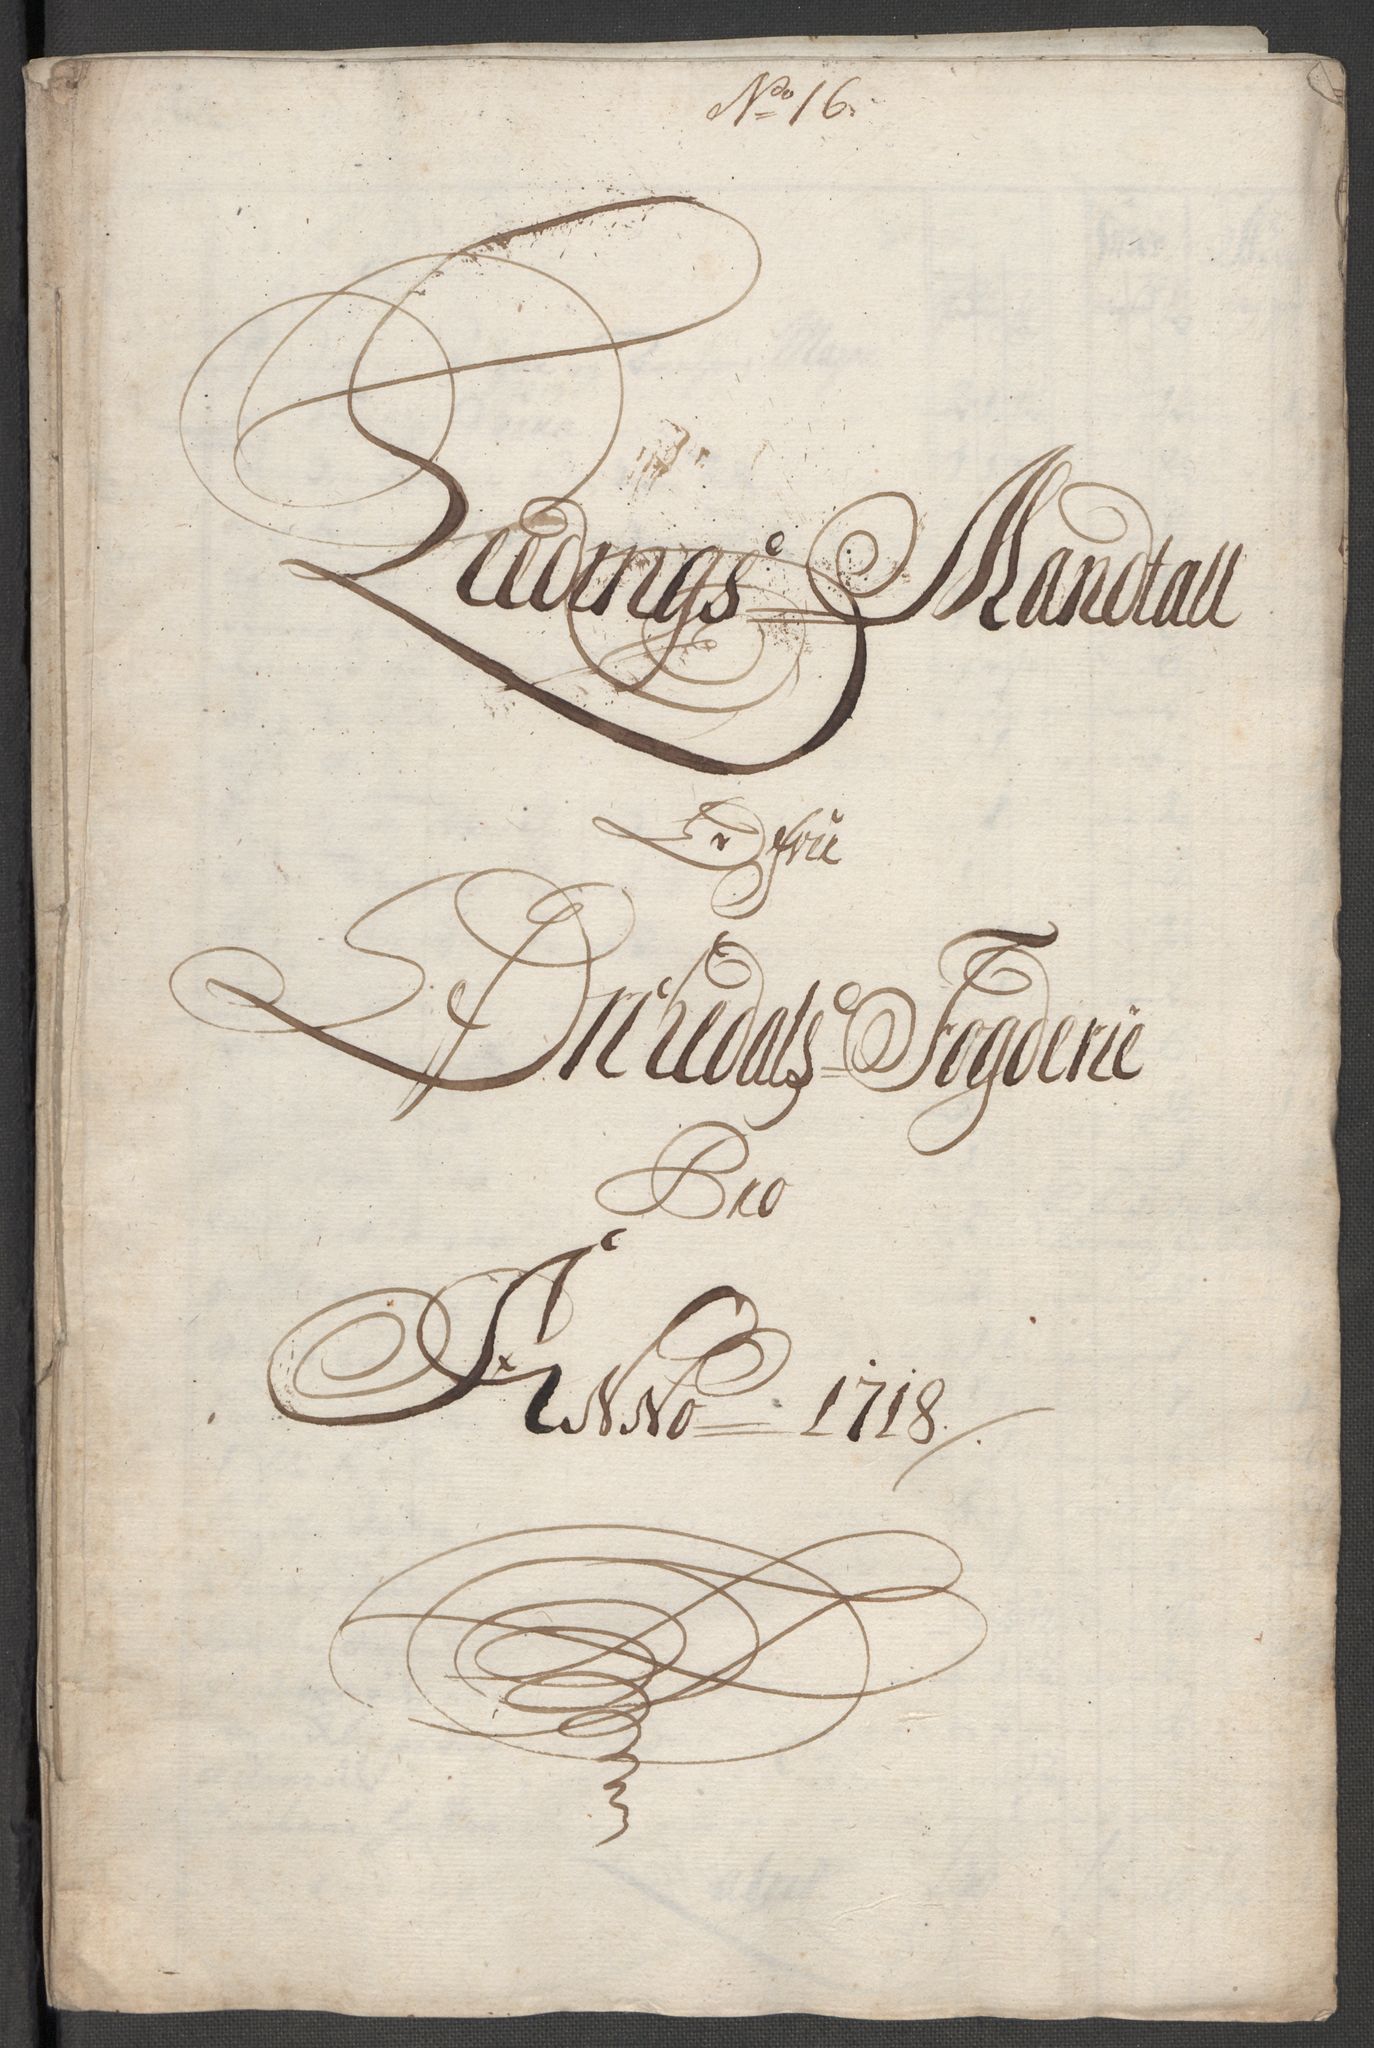 No 16.
Leedings Mandtall
Offver
Orchedals Fogderie
Pro
Anno 1718.